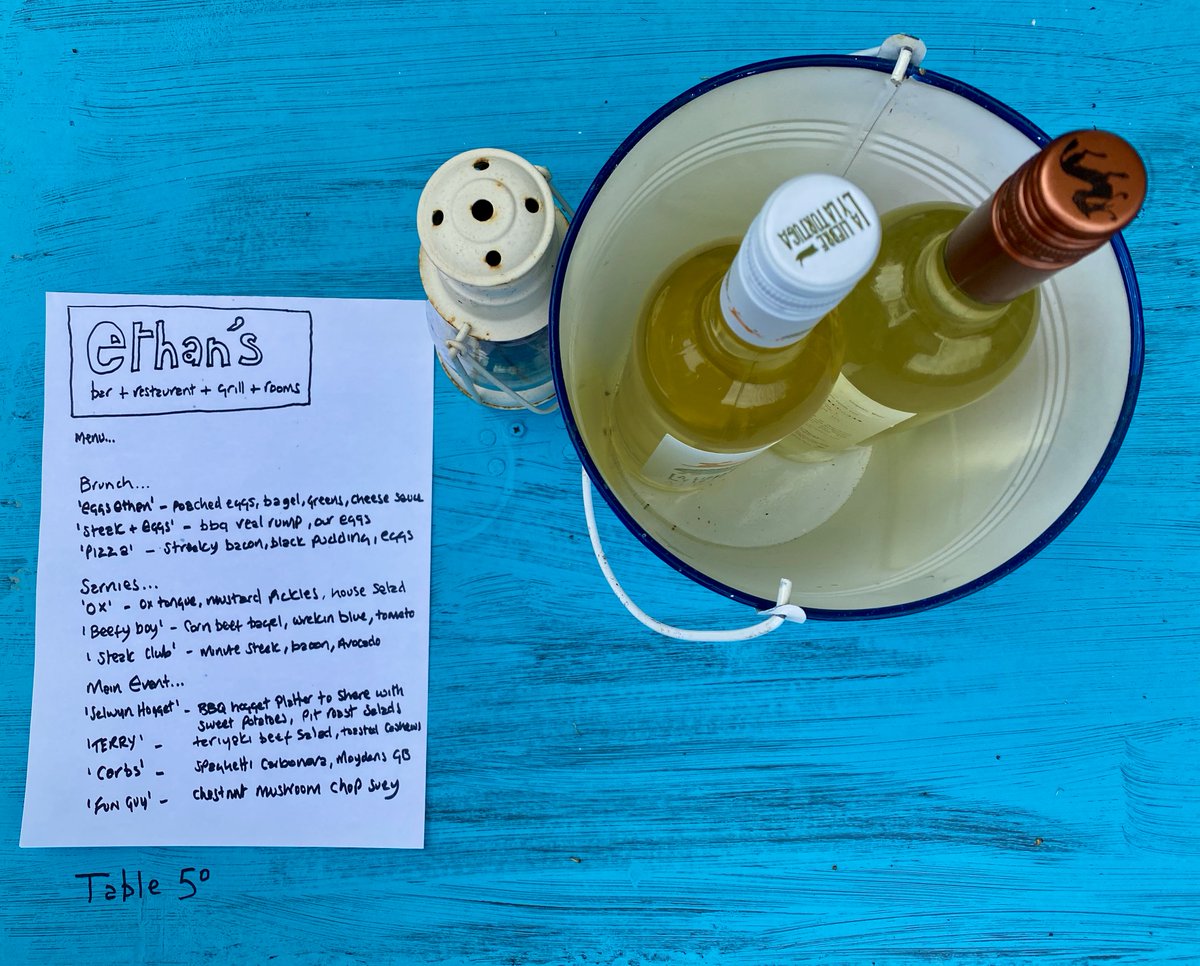 ethan's
bar + restaurant + grill + rooms
Menu...
Brunch...
'Eggs Ethan' - Poached eggs, bagel, greens, cheese sauce
'Steak + Eggs' - bbq veal rump, our eggs
'Pizza' - Streaky bacon, black pudding, eggs
Sarnies...
'OX' - Ox tongue, mustard pickles, house salad
'Beefy boy' - Corn beef bagel, wrekin blue, tomato
'Steak Club' - Minute steak, bacon, Avocado
Main Event...
'Selwyn Hogget' - BBQ hogget Platter to share with
sweet potatoes, Pit roast salads
'TERRY' - teriyaki beef salad, toasted cashews
'Carbs' - Spaghetti Carbonara, Maydens GB
'FUN GUY' - chestnut mushroom chop suey
Table 5º
LA LIEBRE
Y LA TORTUGA